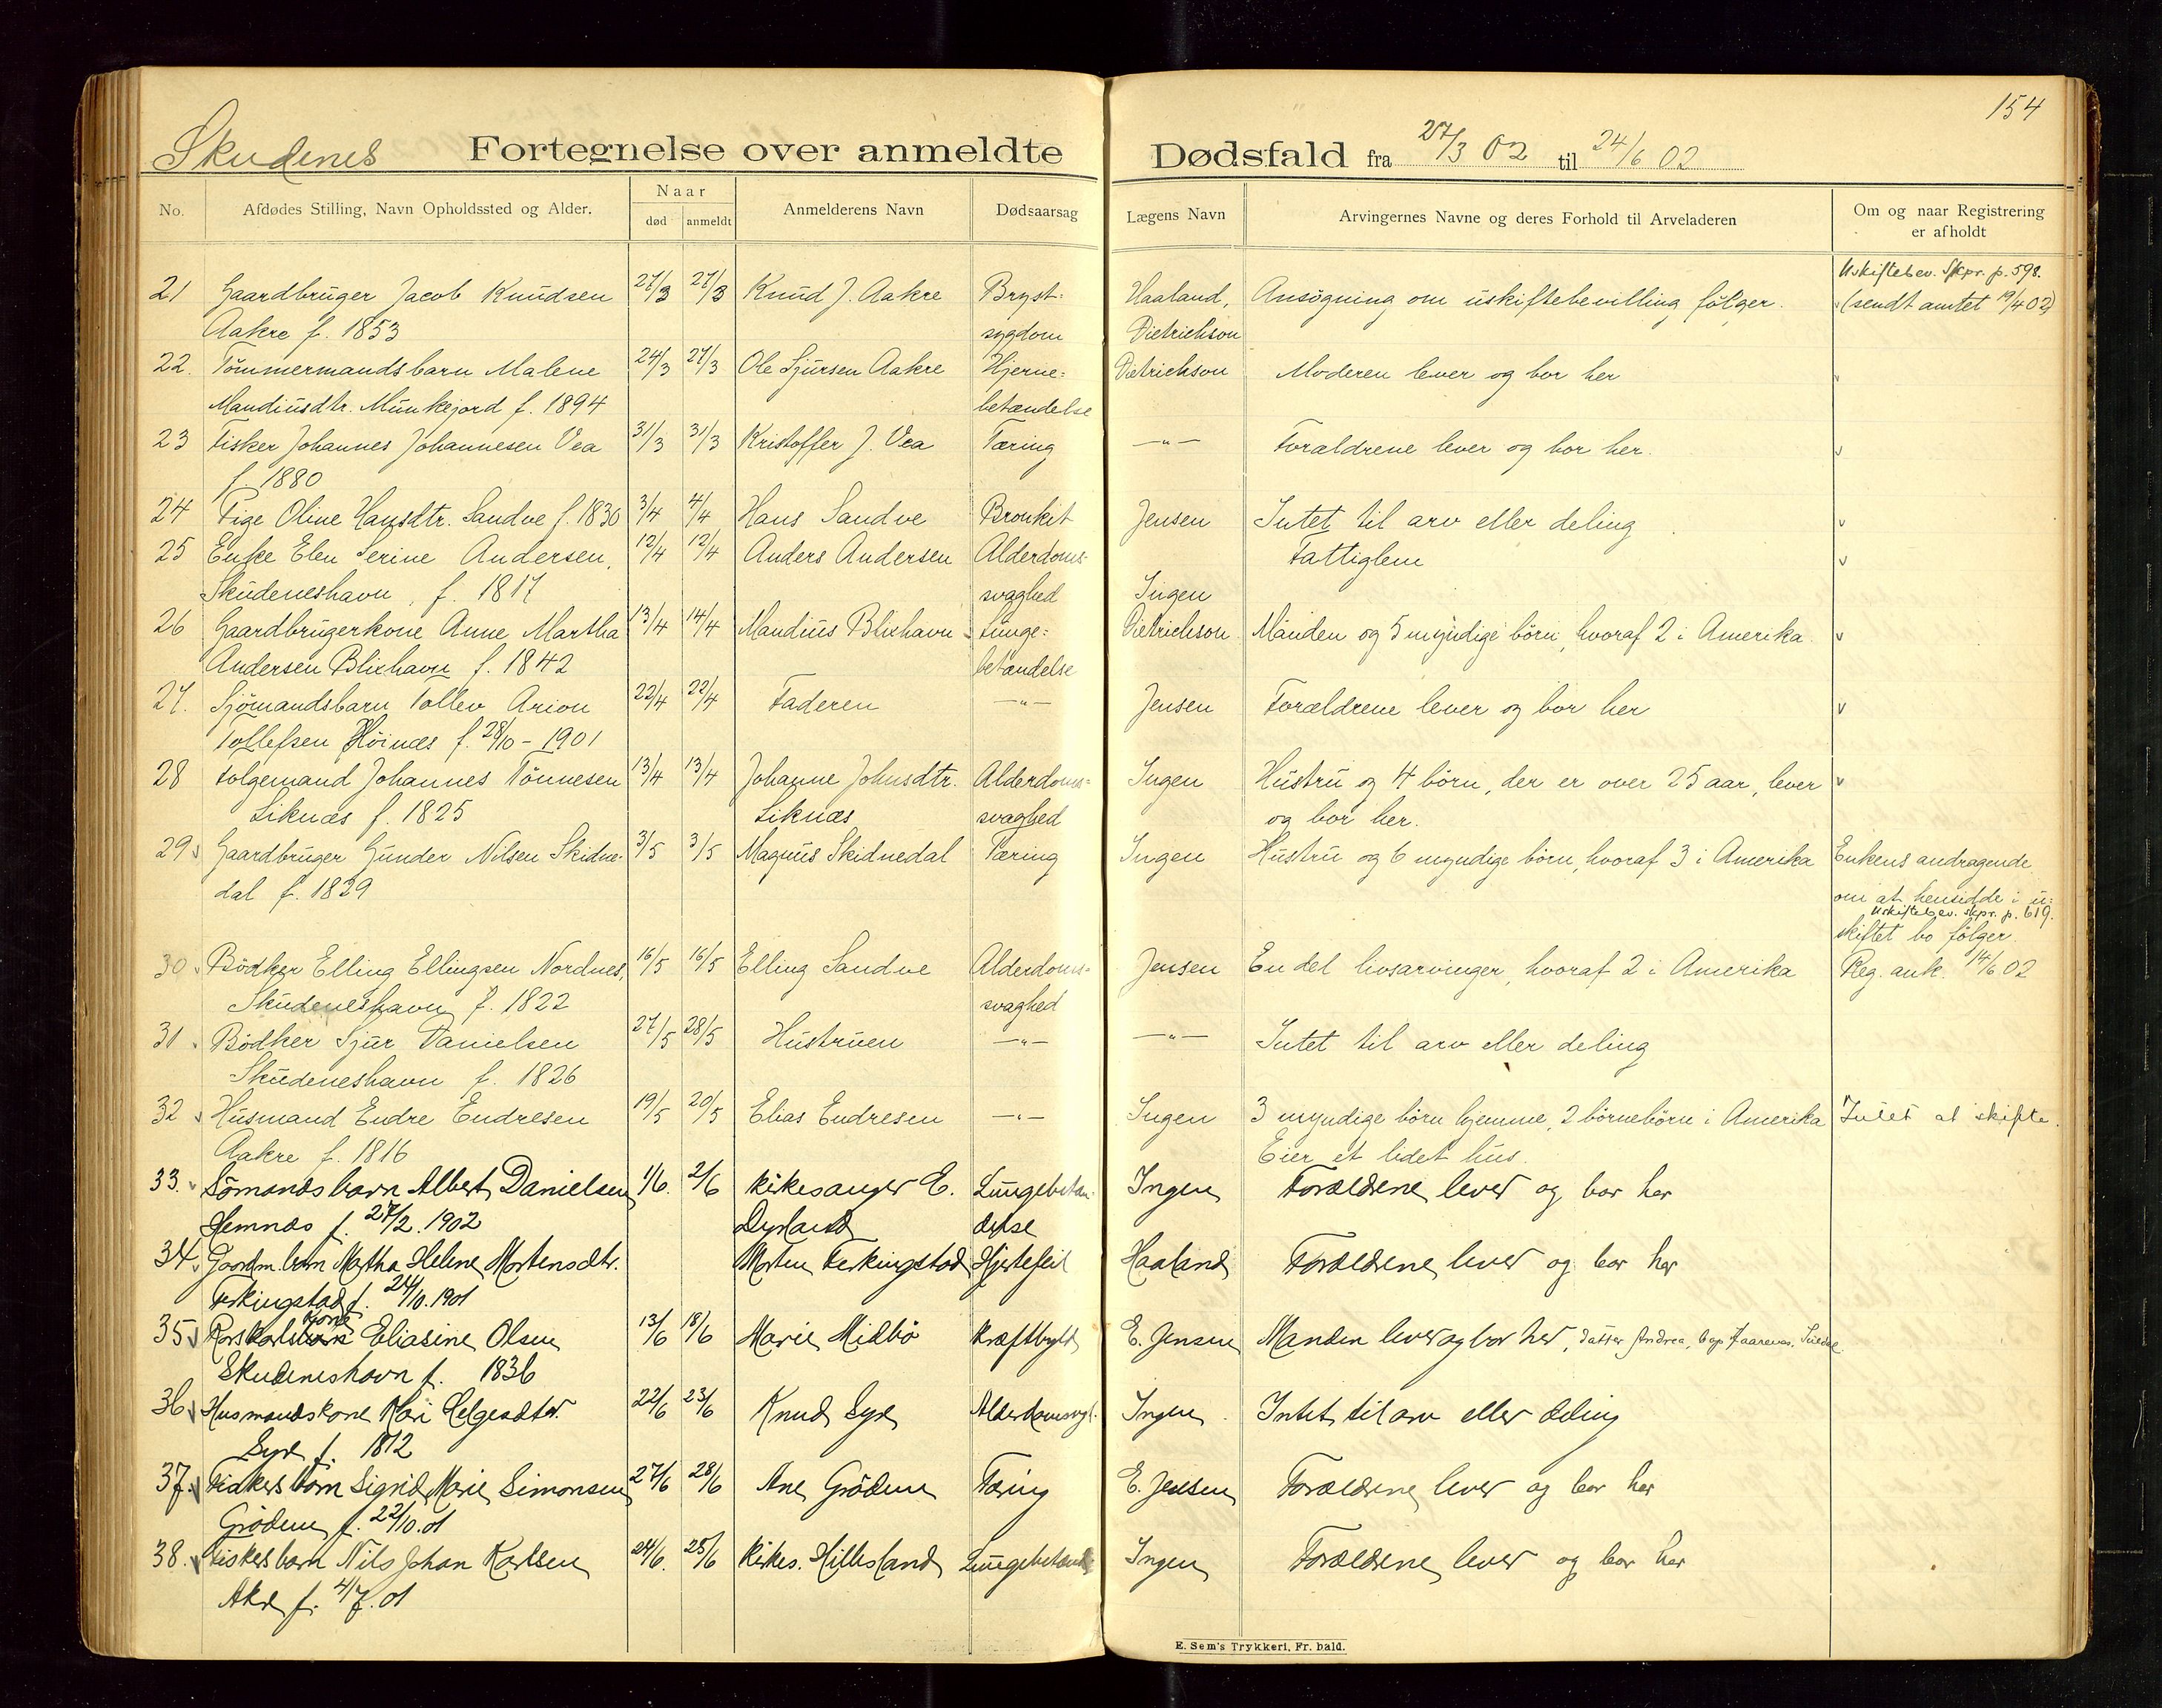 154
Skudenes Fortegnelse over anmeldte Dødsfald fra 27/3 02 til 24/6 02
No. Afdødes Stilling, Navn Opholdssted og Alder. Naar død anmeldt Anmelderens Navn Dødsaarsag Lægens Navn Arvingernes Navne og deres Forhold til Arveladeren Om og naar Registrering er afholdt
Uskiftebev. Skpr. p. 598.
21 Gaardbruger Jacob Knudsen 27/3 27/3 Knud J. Aakre Bryst- Haaland, Ansøgning om uskiftebevilling følger. (sendt amtet 19/4 02)
Aakre f. 1853 sygdom Dietrichson
22. Tømmermandsbarn Malene 24/3 27/3 Ole Sjursen Aakre Hjerne- Dietrichson Moderen lever og bor her
Mandiusdtr. Munkejord f. 1894 betændelse
23 Fisker Johannes Johannesen Vea 31/3 31/3 Kristoffer J. Vea Tæring —"— Forældrene lever og bor her.
f. 1880
24 Pige Oline Hansdtr. Sandve f. 1830 3/4 4/4 Hans Sandve Bronkit Jensen Intet til arv eller deling
25 Enke Elen Serine Andersen, 12/4 12/4 Anders Andersen Alderdoms- Fattiglem
Skudeneshavn, f. 1817 svaghed Ingen
26 Gaardbrugerkone Anne Martha 13/4 14/4 Mandius Blixhavn Lunge- Dietrichson Manden og 5 myndige børn, hvoraf 2 i Amerika.
Andersen Blixhavn f. 1842 betændelse
27. Sjømandsbarn Tollev Arion 22/4 22/4 Faderen —"— Jensen Forældrene lever og bor her
Tollefsen Høinæs f. 28/10 - 1901
28 Folgemand Johannes Tønnesen 13/4 13/4 Johanne Johnsdtr. Alderdoms- Ingen Hustru og 4 børn, der er over 25 aar, lever
Liknæs f. 1825 Liknæs svaghed og bor her.
29 Gaardbruger Gunder Nilsen Skidne- 3/5 3/5 Magnus Skidnedal Tæring Ingen Hustru og 6 myndige børn, hvoraf 3 i Amerika Enkens andragende
dal f. 1829 om at hensidde i u-
Uskiftebev. Skpr. p. 619.
skiftet bo følger.
30 Bødker Elling Ellingsen Nordnes, 16/5 16/5 Elling Sandve Alderdoms- Jensen En del livsarvinger, hvoraf 2 i Amerika Reg. ank. 14/6 02
Skudeneshavn f. 1822 svaghed
31 Bødker Sjur Danielsen 27/5 28/5 Hustruen —"— —"— Intet til arv eller deling
Skudeneshavn f. 1826
32 Husmand Endre Endresen 19/5 20/5 Elias Endresen —"— Ingen 3 myndige børn hjemme, 2 børnebørn i Amerika Intet at skifte.
Aakre f. 1816 Eier et lidet hus.
33. Sømands barn Albert Danielsen 1/6. 2/6 Kirkesanger E. Lungebetæn- Ingen Forældrene lever og bor her
Hemnæs f. 27/2. 1902 Dyrland delse
34. Gaardm. barn Martha Helene Mortensdtr. Morten Ferkingstad Hjertefeil Haaland Forældrene lever og bor her
Ferkingstad f. 24/10. 1901
35 kone Eliasine Olsen 13/6 18/6 Marie Midbø Kræftbyld E. Jensen Manden lever og bor her, datter Andrea,
Skudeneshavn f. 1836
36 Husmandskone Kari Helgesdtr. 22/6 23/6 Knud Syre Alderdomssvagh. Ingen Intet til arv eller deling
Syre f. 1812
37. Fiskers barn Sigrid Marie Simonsen 27/6 28/6 Ane Grødem Tæring E. Jensen Forældrene lever og bor her
Grødem f. 22/10. 01
38. Fiskers barn Nils Johan Karlsen 24/6. 25/6 Kirkes. Hillesland Lungebetænd. Ingen Forældrene lever og bor her
Akre f. 4/7. 01
E. Sem's Trykkeri, Fr. hald.